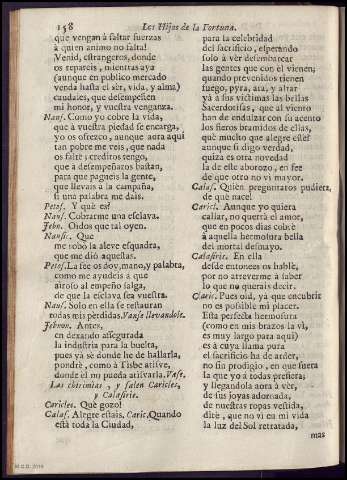 158 Los Hijos de la Fortuna.
que vengan à faltar fuerzas
à quien animo no falta!
Venid, estrangeros, donde
os repareis, mientras aya
(aunque en publico mercado
venda hasta el sèr, vida, y alma)
caudales, que desempeñen
mi honor, y vuestra venganza.
Nauf. Como yo cobre la vida,
que à vuestra piedad se encarga,
yo os ofrezco, aunque aora aqui
tan pobre me veis, que nada
os falte; creditos tengo,
que à desempeñaros bastan,
para que pagueis la gente,
que llevais à la campaña,
si una palabra me dais.
Petos. Y què es?
Nauf. Cobrarme una esclava.
Jebn. Oidos que tal oyen.
Nausic. Que
me robò la aleve esquadra,
que me diò aquestas.
Petos. La fee os doy, mano, y palabra,
como me ayudeis à que
ayroso al empeño salga,
de que la esclava sea vuestra.
Nauf. Solo en ella se restauran
todas mis pèrdidas. Vanse llevandole.
Jebnon. Antes,
en dexando assegurada
la industria para la buelta,
pues yà sè donde he de hallarla,
pondrè, como à Tisbe avive,
donde èl no pueda avivarla. Vase.
Las chirimias, y salen Caricles,
y Calasiris.
Caricles. Què gozo!
Calas. Alegre estais. Caric. Quando
està toda la Ciudad,
para la celebridad
del sacrificio, esperando
solo à vèr desembarcar
las gentes que con èl vienen;
quando prevenidos tienen
fuego, pyra, ara, y altar
yà à sus victimas las bellas
Sacerdotisas, que al viento
han de endulzar con su acento
los fieros bramidos de ellas,
què mucho que alegre estè?
aunque si digo verdad,
quiza es otra novedad
la de este aborozo, en fee
de que otra no vì mayor.
Calas. Quien preguntaros pudiera,
de què nace!
Caricl. Aunque yo quiera
callar, no querrà el amor,
que en pocos dias cobrè
à aquella hermosura bella
del mortal desmayo.
Calasiris. En ella
desde entonces os hablè,
por no atreverme à saber
lo que no querais decir.
Caric. Pues oid, ya que encubrir
no es possible mi placer.
Esta perfecta hermosura
(como en mis brazos la vi,
es muy largo para aqui)
es à cuya llama pura
el sacrificio ha de arder,
no sin prodigio, en que fuera
la que yo à todas prefiera;
y llegandola aora à vèr,
de sus joyas adornada,
de nuestras ropas vestida,
dirè, que no vì en mi vida
la luz del Sol retratada,
mas